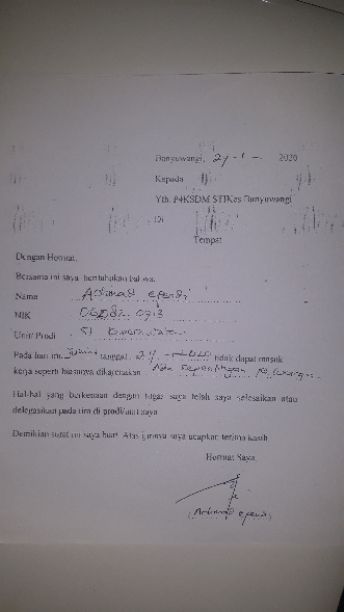 Banyuwangi, 24-1- 2020
Kepada
Yth. P4KSDM STIKes Banyuwangi
Di
Tempat
Dengan Hormat,
Bersama ini saya beritahukan bahwa,
Nama Achmad efendi
NIK
Unit/ Prodi S1 Keperawatan
Pada hari ini, Jumat tanggal, tidak dapat masuk
kerja seperti biasanya dikarenakan Ada kepentingan keluarga
Hal-hal yang berkenaan dengan tugas saya telah saya selesaikan atau
delegasikan pada tim di prodi/unit saya
Demikian surat ini saya buat. Atas ijinnya saya ucapkan terima kasih
Hormat Saya,
(Achmad efendi)